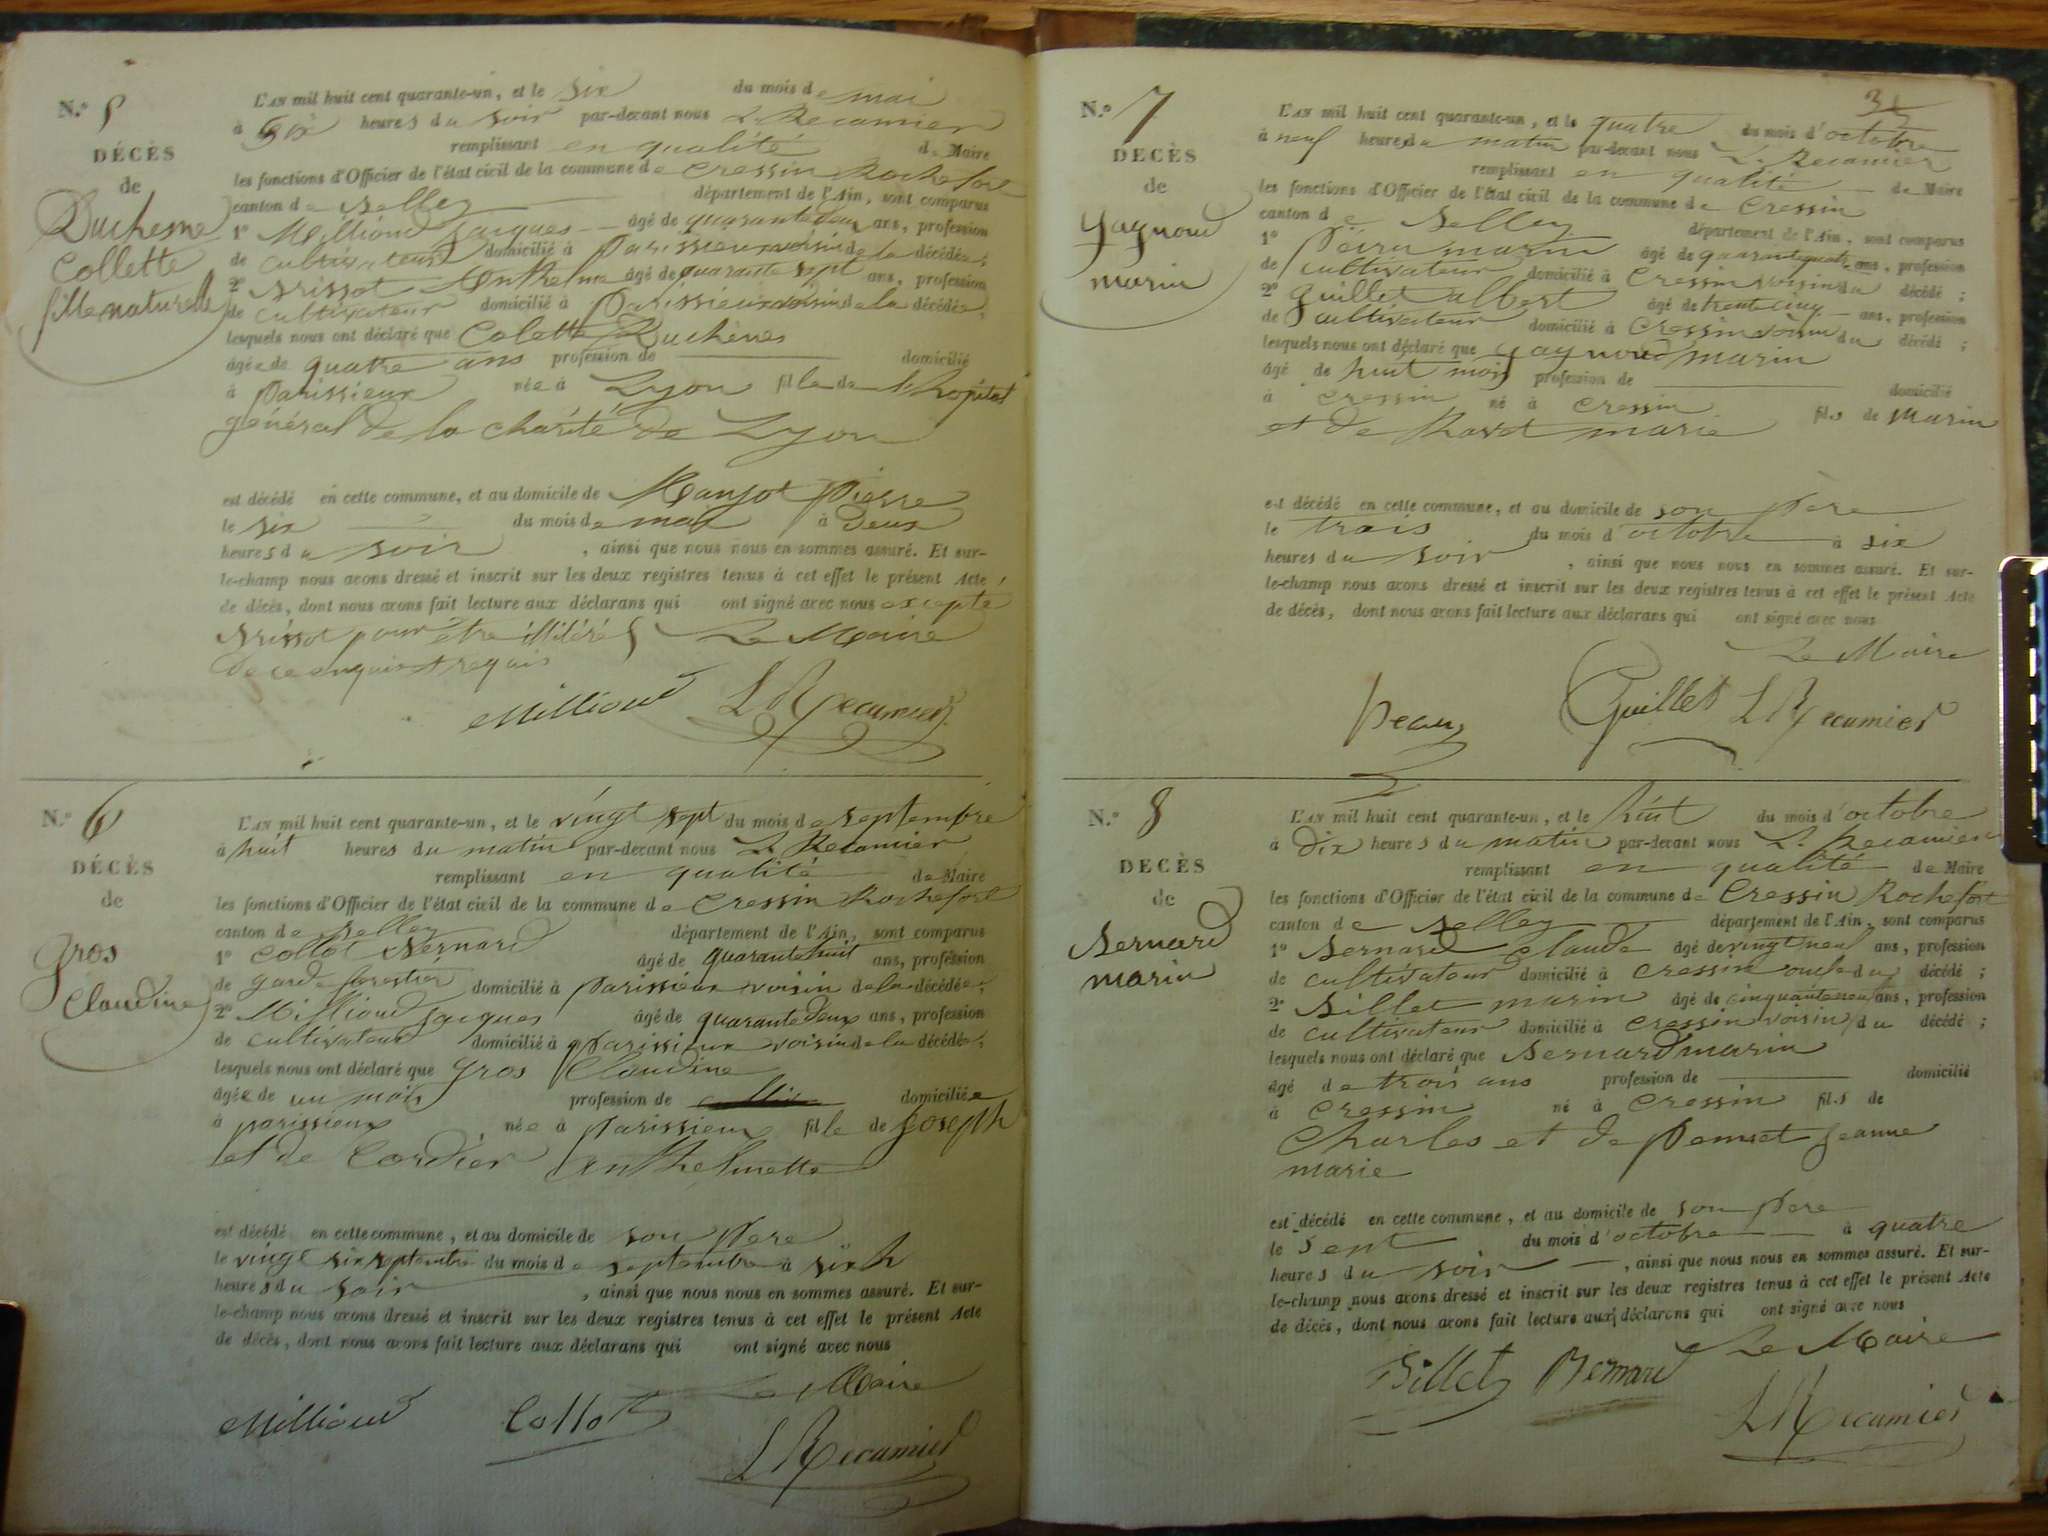 N.° 5
DÉCÈS
de
Duchesne
Collette
fille naturelle
L'AN mil huit cent quarante-un, et le six du mois de mai
à six heures du soir par-devant nous L. Recamier
remplissant en qualité de Maire
les fonctions d'Officier de l'état civil de la commune de Cressin Rochefort
canton de Belley département de l'Ain, sont comparus
1° Millioud Jacques âgé de quarante deux ans, profession
de cultivateur domicilié à Parissieux voisin de la décédée;
2° Brissot Anthelme âgé de quarante sept ans, profession
de cultivateur domicilié à Parissieux voisin de la décédée;
lesquels nous ont déclaré que Colette Duchènes
âgée de quatre ans profession de domicilié
à Parissieux née à Lyon fille de l'hopital
général de la charité de Lyon
est décédé en cette commune, et au domicile de Manjot Pierre
le six du mois de mai à deux
heures du soir, ainsi que nous nous en sommes assuré. Et sur-
le-champ nous avons dressé et inscrit sur les deux registres tenus à cet effet le présent Acte,
de décès, dont nous avons fait lecture aux déclarans qui ont signé avec nous excepté
Brissot pour être illitéré Le Maire
de ce enquis et requis
Millioud L Recamier
N.° 6
DÉCÈS
de
Gros
Claudine
L'AN mil huit cent quarante-un, et le vingt sept du mois de septembre
à huit heures du matin par-devant nous L. Recamier
remplissant en qualité de Maire
les fonctions d'Officier de l'état civil de la commune de Cressin Rochefort
canton de Belley département de l'Ain, sont comparus
1° Collot Bernard âgé de quarante huit ans, profession
de garde forestier domicilié à Parissieux voisin de la décédée;
2° Millioud Jacques âgé de quarante deux ans, profession
de cultivateur domicilié à Parissieux voisin de la décédée;
lesquels nous ont déclaré que Gros Claudine
âgée de un mois profession de domiciliée
à Parissieux née à Parissieux fille de Joseph
et de Cordier Anthelmette
est décédé en cette commune, et au domicile de son Père
le vingt six septembre du mois de septembre à six h
heures du soir, ainsi que nous nous en sommes assuré. Et sur-
le-champ nous avons dressé et inscrit sur les deux registres tenus à cet effet le présent Acte
de décès, dont nous avons fait lecture aux déclarans qui ont signé avec nous
Le Maire
Millioud Collot
L Recamier
N.° 7
DÉCÈS
de
Gagnoud
marin
L'AN mil huit cent quarante-un, et le quatre du mois d'octobre
à neuf heures du matin par-devant nous L. Recamier
remplissant en qualité de Maire
les fonctions d'Officier de l'état civil de la commune de Cressin
canton de Belley département de l'Ain, sont comparus
1° marin âgé de quarante quatre ans, profession
de cultivateur domicilié à Cressin voisin du décédé;
2° Guillet albert âgé de trente cinq ans, profession
de cultivateur domicilié à Cressin voisin du décédé;
lesquels nous ont déclaré que Gagnoud marin
âgé de huit mois profession de domicilié
à Cressin né à Cressin fils de Marin
et de marie
est décédé en cette commune, et au domicile de son Père
le trois du mois d'octobre à six
heures du soir, ainsi que nous nous en sommes assuré. Et sur-
le-champ nous avons dressé et inscrit sur les deux registres tenus à cet effet le présent Acte
de décès, dont nous avons fait lecture aux déclarans qui ont signé avec nous
Le Maire
Guillet L Recamier
N.° 8
DÉCÈS
de
Bernard
marin
L'AN mil huit cent quarante-un, et le huit du mois d'octobre
à dix heures du matin par-devant nous L. Recamier
remplissant en qualité de Maire
les fonctions d'Officier de l'état civil de la commune de Cressin Rochefort
canton de Belley département de l'Ain, sont comparus
1° Bernard Claude âgé de vingt neuf ans, profession
de cultivateur domicilié à Cressin oncle du décédé;
2° Billet marin âgé de cinquante neuf ans, profession
de cultivateur domicilié à Cressin voisin du décédé;
lesquels nous ont déclaré que Bernard marin
âgé de trois ans profession de domicilié
à Cressin né à Cressin fils de
Charles et de Jeanne
marie
est décédé en cette commune, et au domicile de son Père
le Sept du mois d'octobre à quatre
heures du soir, ainsi que nous nous en sommes assuré. Et sur-
le-champ nous avons dressé et inscrit sur les deux registres tenus à cet effet le présent Acte
de décès, dont nous avons fait lecture aux déclarans qui ont signé avec nous
Le Maire
Billet Bernard
L Recamier